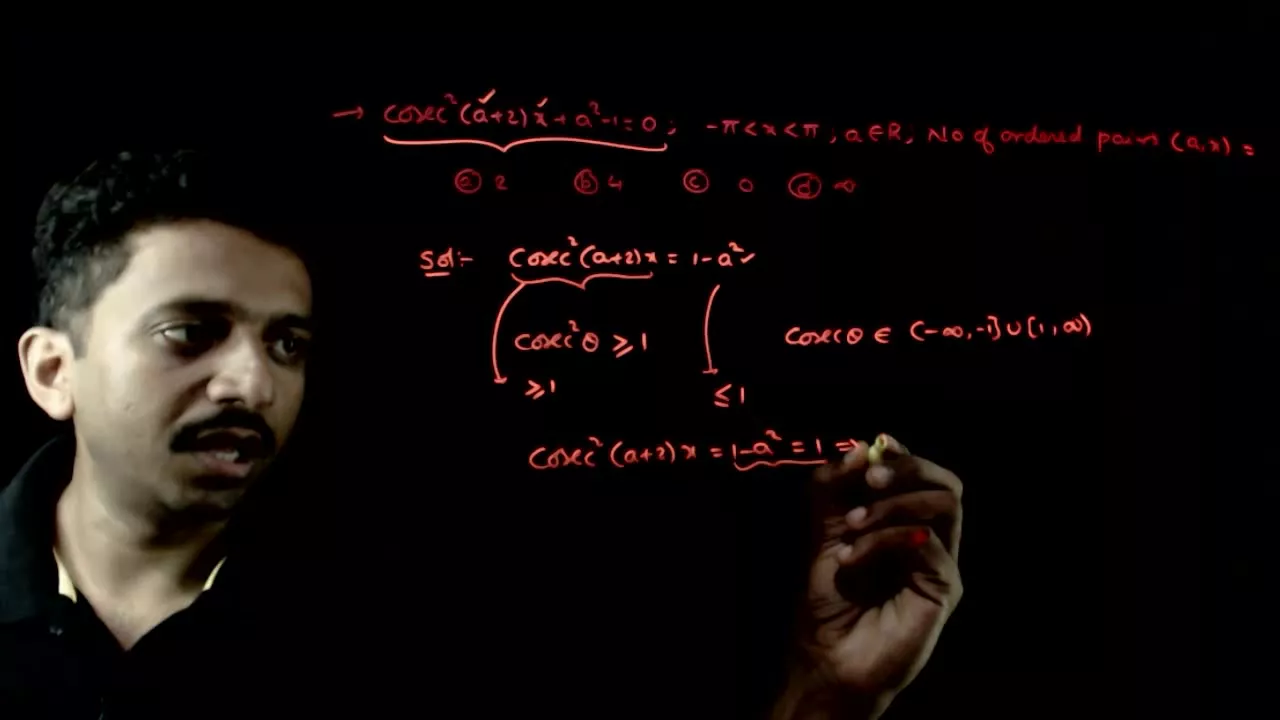 → cosec²(a+2)x + a²-1=0 ; -π<x<π ; a∈R, No of ordered pairs (a,x) =
ⓐ 2 ⓑ 4 ⓒ 0 ⓓ ∞
Sol:- cosec²(a+2)x = 1-a²
cosec²θ ≥ 1 cosecθ ∈ (-∞,-1]∪[1,∞)
≥1 ≤1
cosec²(a+2)x = 1-a² = 1 ⇒